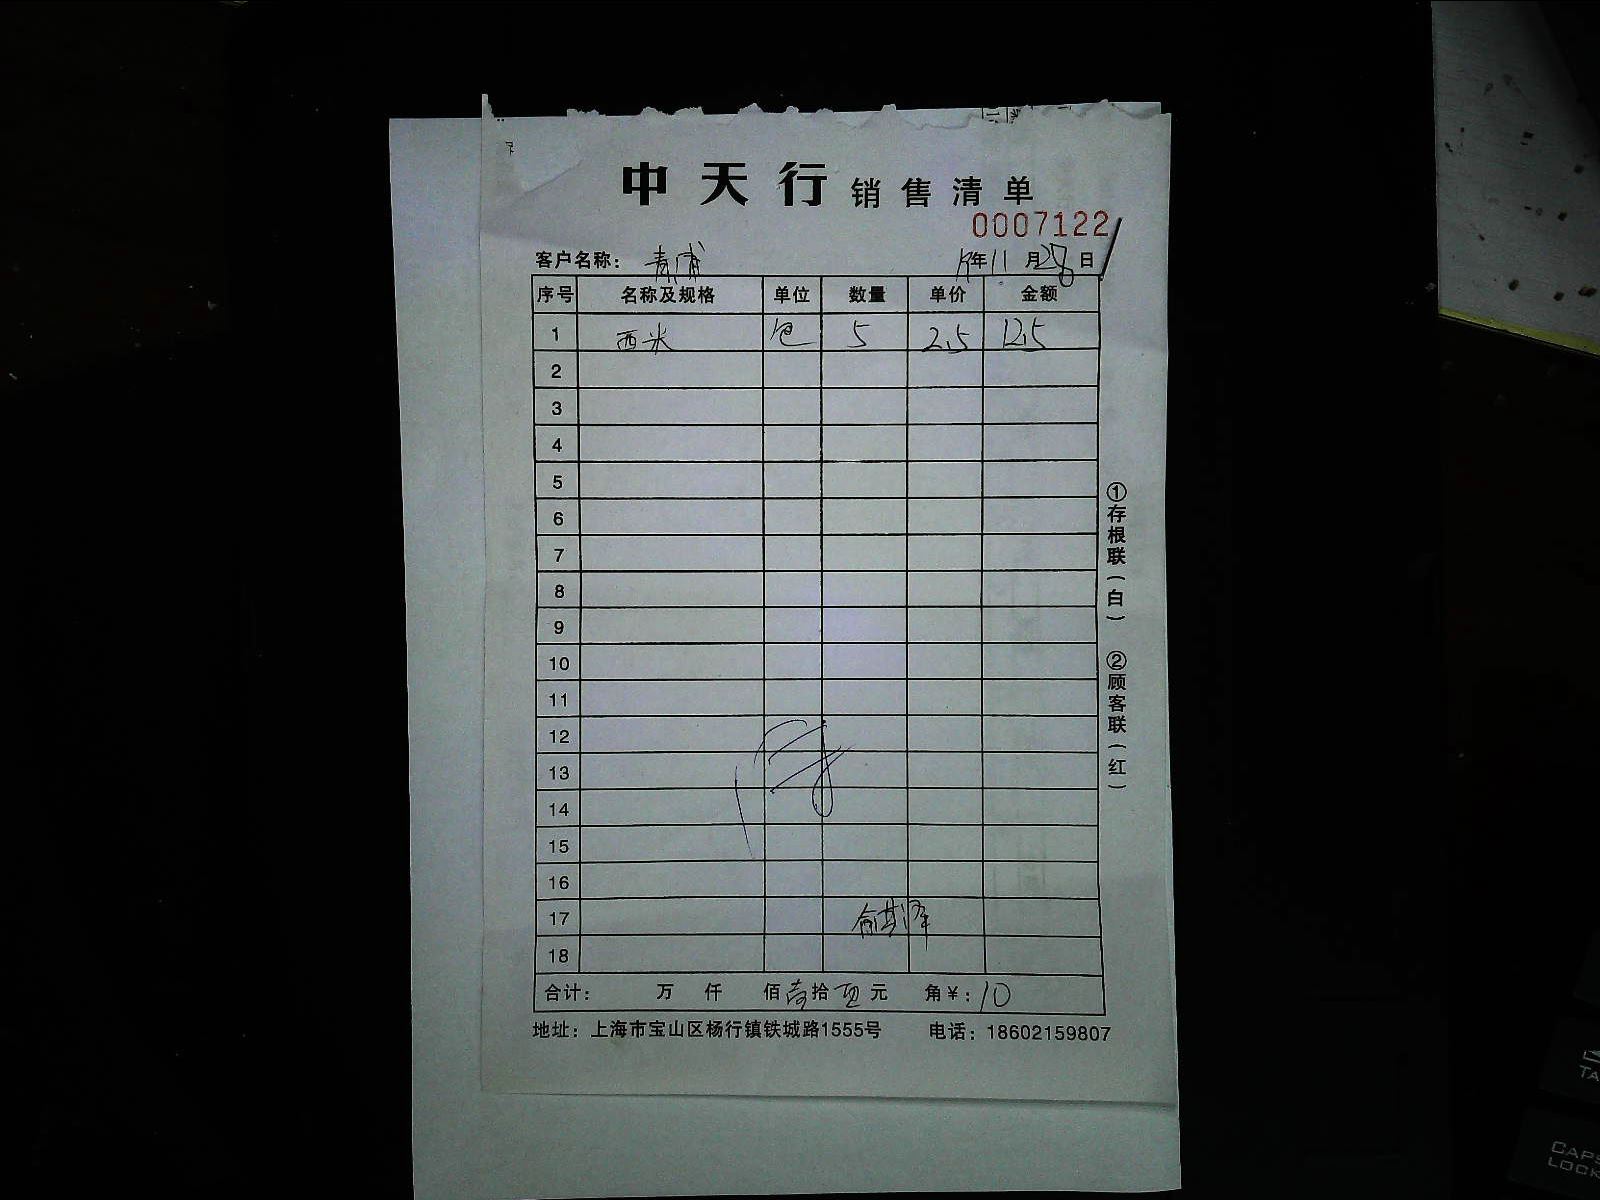 中天行 销售清单
0007122
客户名称: 青浦 19年11月28日
序号 名称及规格 单位 数量 单价 金额
1 西米 包 5 2.5 12.5
2
3
4
5
6
7
8
9
10
11
12
13
14
15
16
17
18
合计: 万 仟 佰 壹拾 元 角 ¥: 10
地址: 上海市宝山区杨行镇铁城路1555号 电话: 18602159807
①存根联(白) ②顾客联(红)
CAPS
LOCK